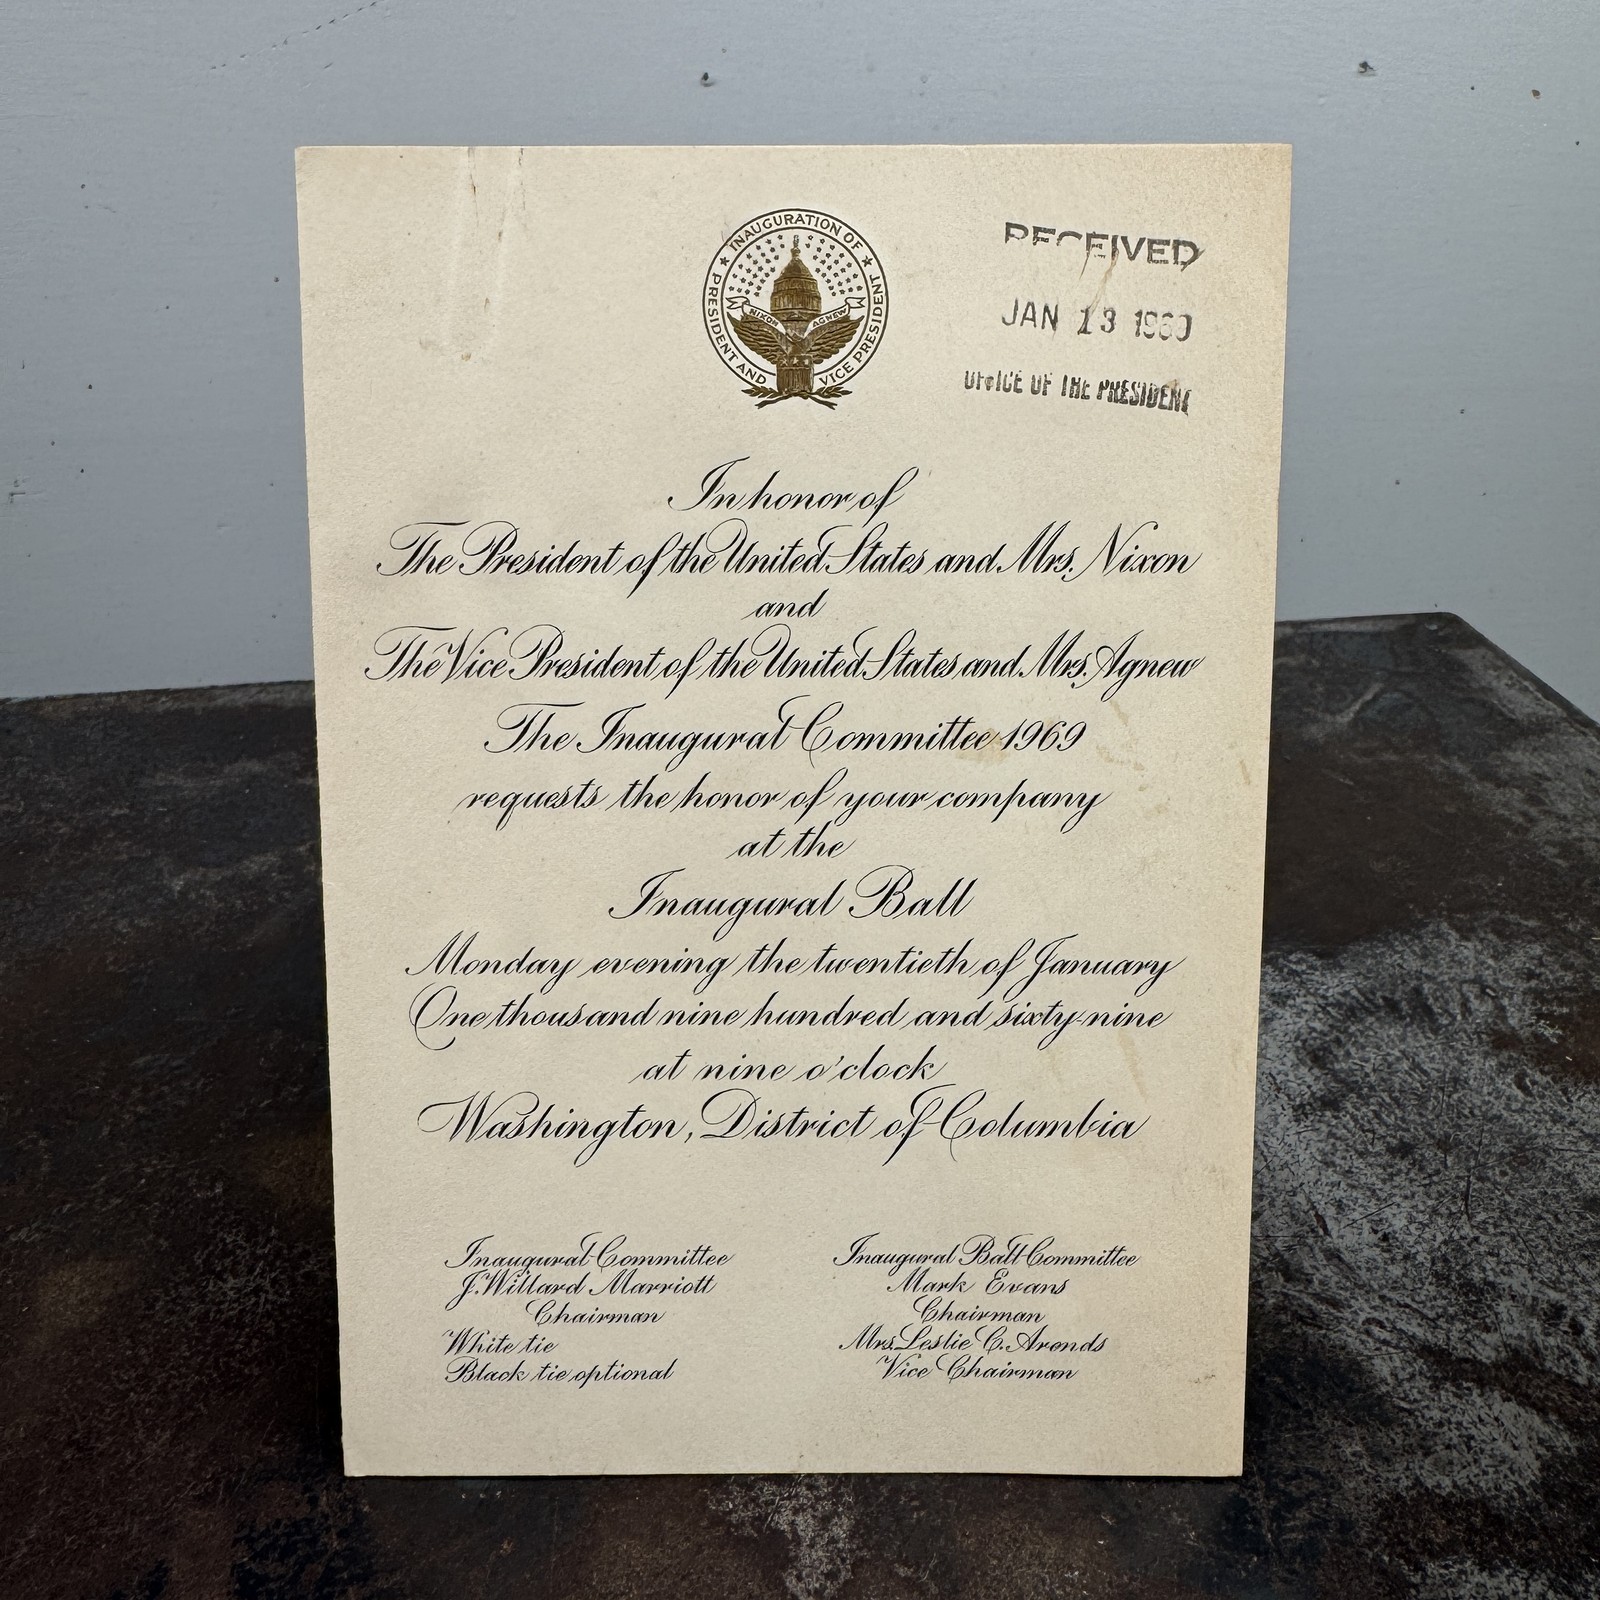 INAUGURATION OF
PRESIDENT AND VICE PRESIDENT
NIXON AGNEW
RECEIVED
JAN 13 1969
OFFICE OF THE PRESIDENT
In honor of
The President of the United States and Mrs. Nixon
and
The Vice President of the United States and Mrs. Agnew
The Inaugural Committee 1969
requests the honor of your company
at the
Inaugural Ball
Monday evening the twentieth of January
One thousand nine hundred and sixty-nine
at nine o'clock
Washington, District of Columbia
Inaugural Committee
J. Willard Marriott
Chairman
White tie
Black tie optional
Inaugural Ball Committee
Mark Evans
Chairman
Mrs. Leslie C. Arends
Vice Chairman